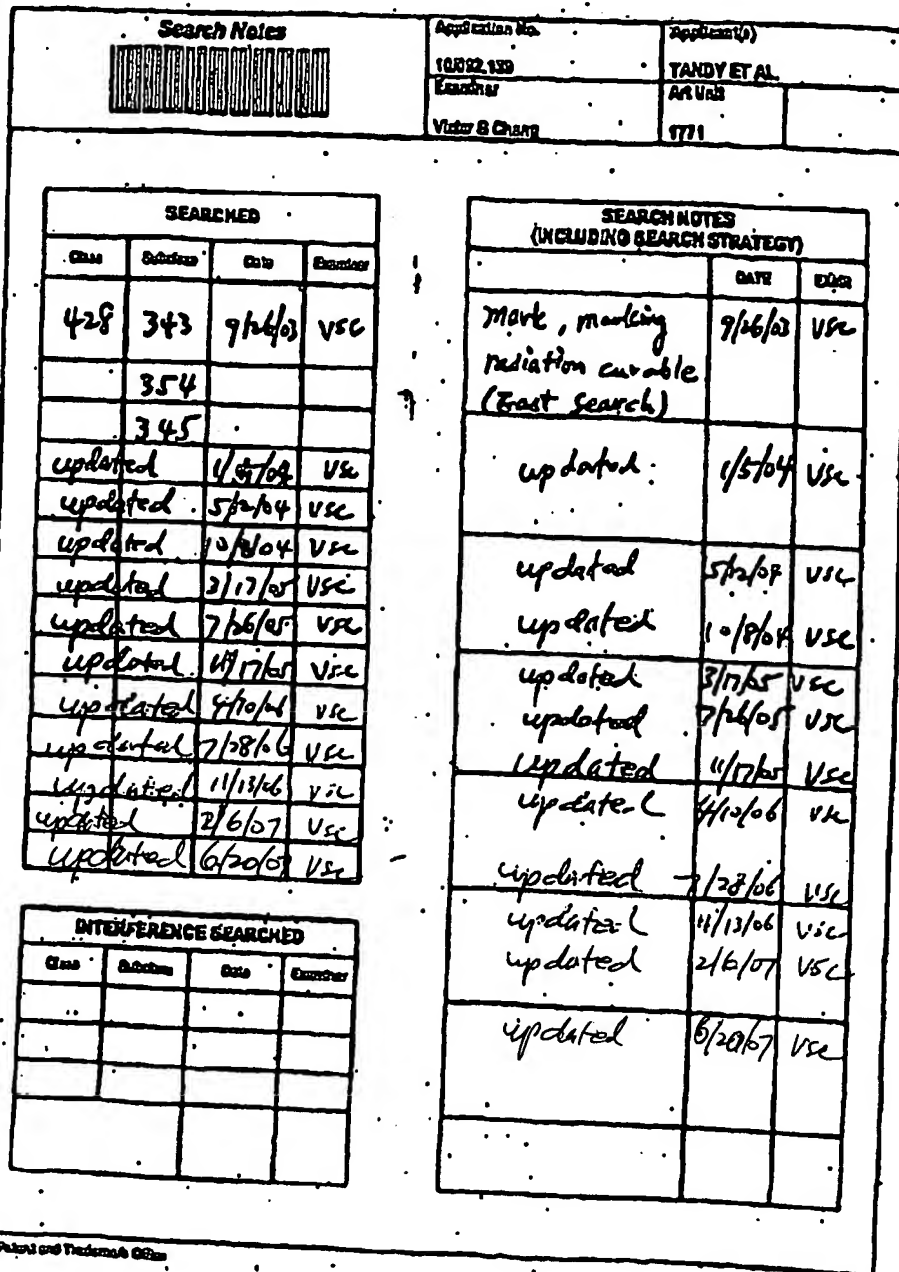 Search Notes
Application No.
Applicant(s)
10/092,139
TANDY ET AL.
Examiner
Art Unit
Victor S Chang
1771
SEARCHED
Class Subclass Date Examiner
428 343 9/26/03 VSC
354
345
updated 1/5/04 VSC
updated 5/12/04 VSC
updated 10/8/04 VSC
updated 3/17/05 VSC
updated 7/26/05 VSC
updated 11/17/05 VSC
updated 4/10/06 VSC
updated 7/28/06 VSC
updated 11/13/06 VSC
updated 2/6/07 VSC
updated 6/20/07 VSC
INTERFERENCE SEARCHED
Class Subclass Date Examiner
SEARCH NOTES
(INCLUDING SEARCH STRATEGY)
DATE EXMR
mark, marking 9/26/03 VSC
radiation curable
(East search)
updated 1/5/04 VSC
updated 5/12/04 VSC
updated 10/8/04 VSC
updated 3/17/05 VSC
updated 7/26/05 VSC
updated 11/17/05 VSC
updated 4/10/06 VSC
updated 7/28/06 VSC
updated 11/13/06 VSC
updated 2/6/07 VSC
updated 6/20/07 VSC
Patent and Trademark Office